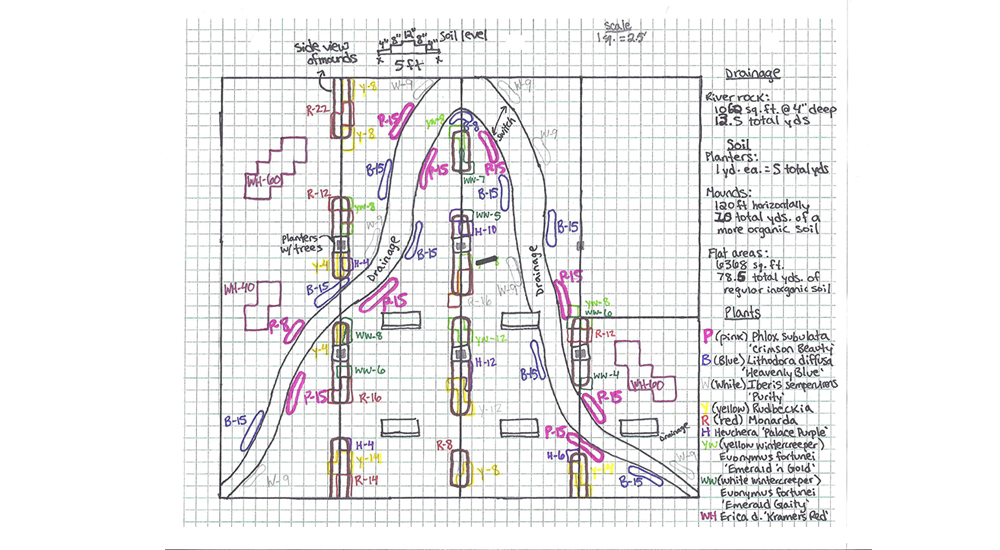 scale
1 sq. = 2.5'
Side view
of mounds
4" 8" 12" 8" 4"
Soil level
x x
5 ft
Y-8
R-22
Y-8
W-9
P-15
YW-8
B-8
switch
W-9
W-9
P-15
P-15
B-15
WW-7
B-15
WH-60
R-12
YW-8
W-9
WW-5
H-10
B-15
B-15
Planters
w/trees
Y-4
H-4
Drainage
Drainage
W-9
P-15
B-15
P-15
R-16
YW-8
WW-6
WH-40
P-8
WW-8
Y-4
YW-12
R-12
WW-6
H-12
B-15
WW-4
WH-60
P-15
R-16
Y-12
P-15
B-15
P-15
Drainage
H-4
Y-14
R-14
R-8
Y-8
H-6
Y-14
W-9
B-15
W-9
Drainage
River rock:
1062 sq. ft. @ 4" deep
12.5 total yds
Soil
Planters:
1 yd. ea. = 5 total yds
Mounds:
120 ft horizontally
10 total yds. of a
more organic soil
Flat areas:
6368 sq. ft.
78.5 total yds. of
regular inorganic soil
Plants
P (pink) Phlox subulata
'Crimson Beauty'
B (Blue) Lithodora diffusa
'Heavenly Blue'
W (White) Iberis sempervirens
'Purity'
Y (yellow) Rudbeckia
R (red) Monarda
H Heuchera 'Palace Purple'
YW (yellow wintercreeper)
Euonymus fortunei
'Emerald 'n Gold'
WW (white wintercreeper)
Euonymus fortunei
'Emerald Gaity'
WH Erica d. 'Kramers Red'